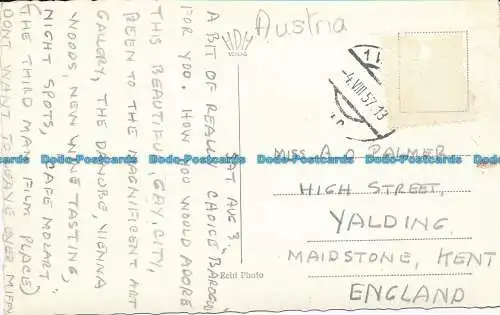 Austria
VDH
VERLAG
-4.VIII.57.13
SAT AUG 3.
A BIT OF REALLY CHOICE "BAROQUE"
FOR YOU. HOW YOU WOULD ADORE
THIS BEAUTIFUL, GAY, CITY,
BEEN TO THE MAGNIFICENT ART
GALLERY, THE DANUBE, VIENNA
WOODS, NEW WINE TASTING,
NIGHT SPOTS, "CAFE MOZART"
(THE THIRD MAN FILM PLACE)
DONT WANT TO LEAVE EVER.
MISS A O PALMER
HIGH STREET,
YALDING,
MAIDSTONE, KENT
ENGLAND
Photo
Dodo-Postcards Dodo-Postcards Dodo-Postcards Dodo-Postcards Dodo-Postcards